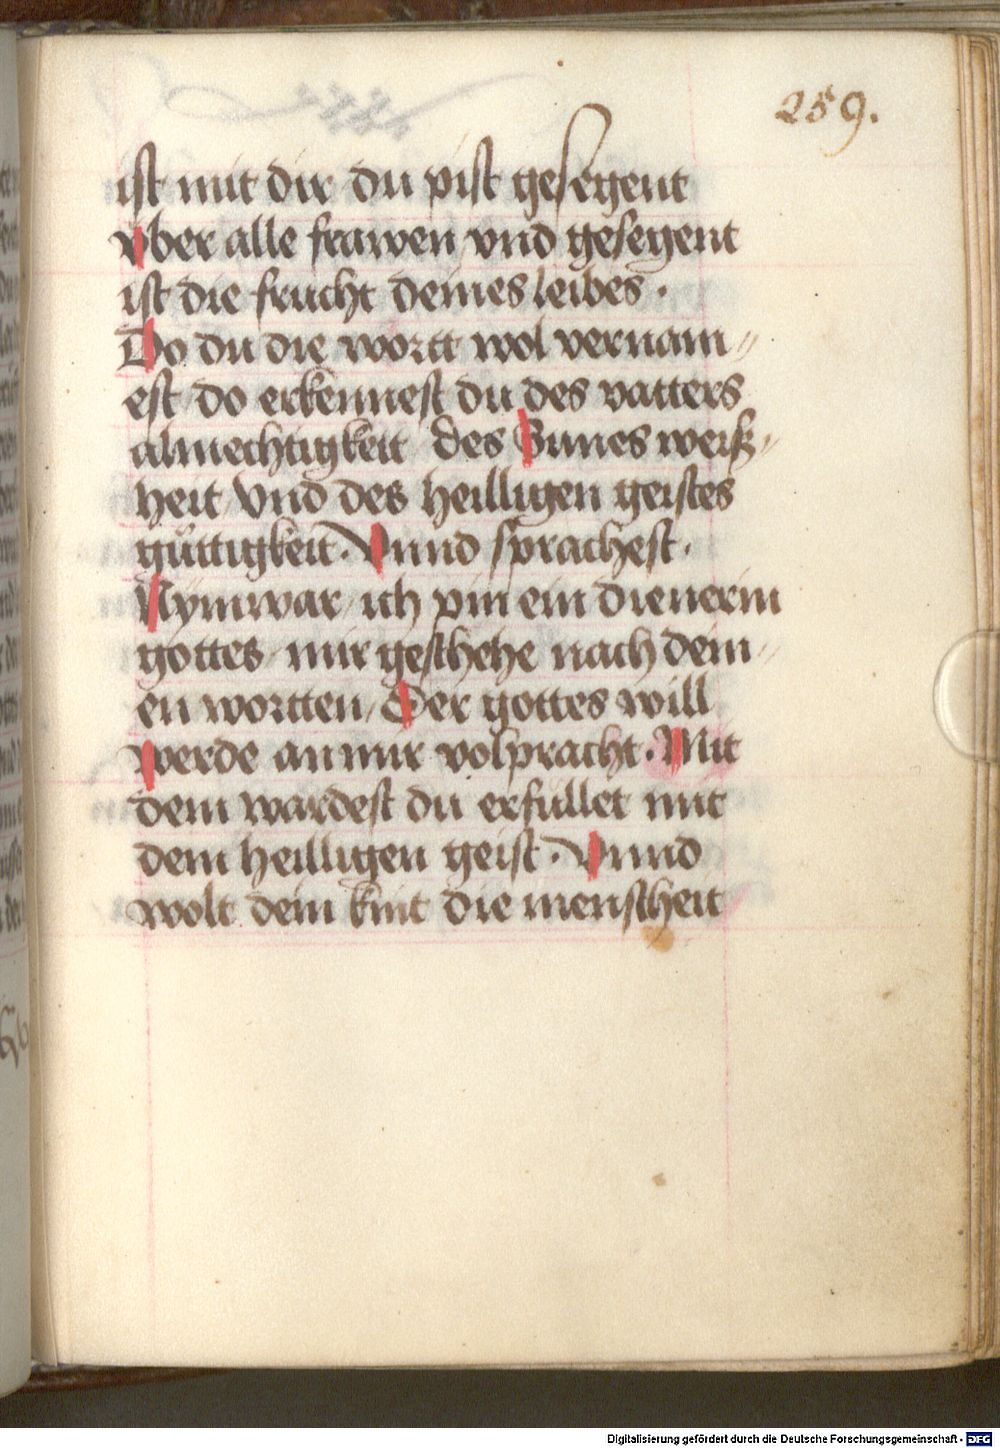 259.
ist mit dir du pist gesegent
vber alle frawen vnd gesegent
ist die frucht deines leibes.
Do du die wortt wol vernam=
est / do erkennest du des vatters
almechtigkeit / des Sunes weiß=
heit / Vnd des heilligen geistes
güttigkeit. Vnnd sprachest.
Nym war / ich pin ein dienerin
gottes / mir geschehe nach dein=
en wortten / Der gottes will
werde an mir volpracht. Mit
dem wardest du erfullet mit
dem heilligen geist. Vnnd
wolt dein kint die menscheit
Digitalisierung gefördert durch die Deutsche Forschungsgemeinschaft - DFG